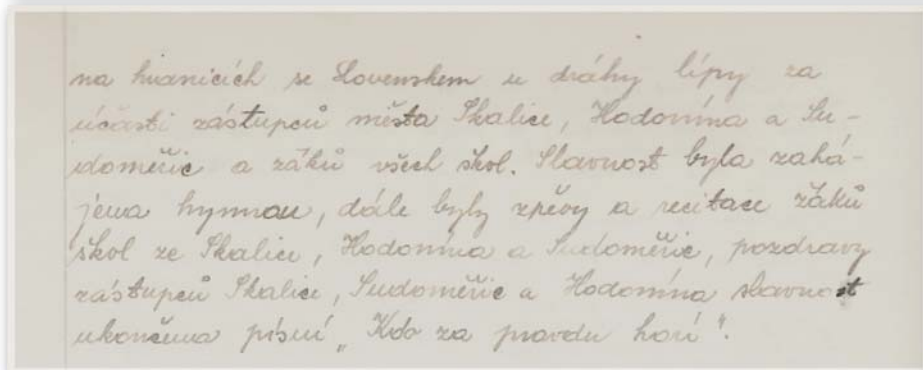 na hranicích se Slovenskem u dráhy lípy za
účasti zástupců města Skalice, Hodonína a Su-
doměřic a žáků všech škol. Slavnost byla zahá-
jena hymnou, dále byly zpěvy a recitace žáků
škol ze Skalice, Hodonína a Sudoměřic, pozdravy
zástupců Skalice, Sudoměřic a Hodonína slavnost
ukončena písní „Kdo za pravdu horí".